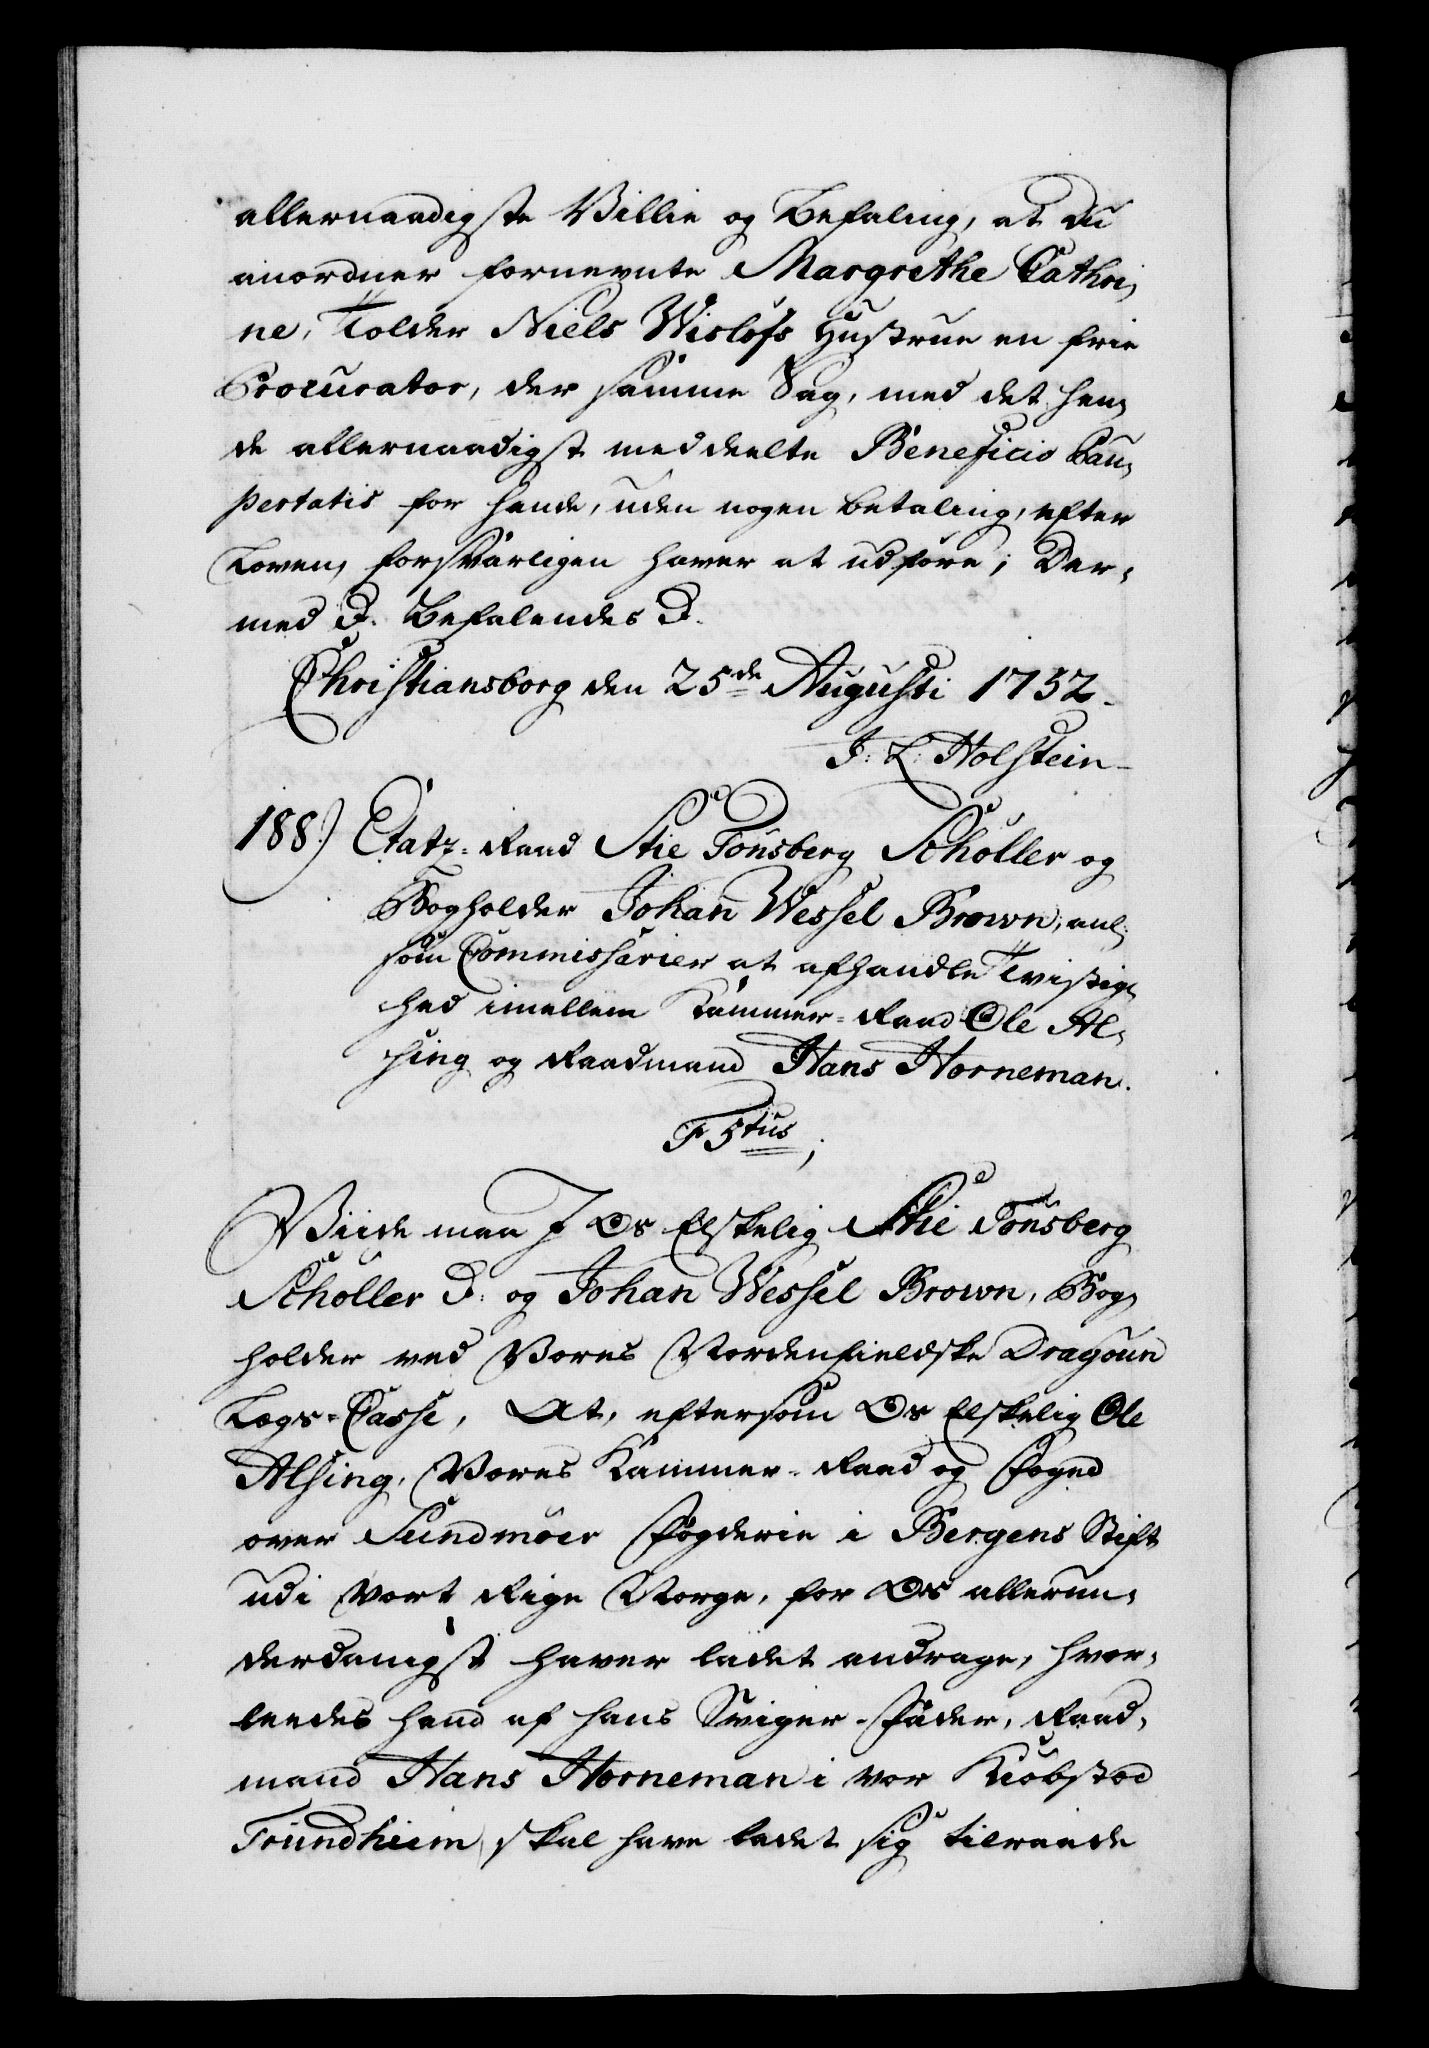 allernaadigste Villie og Befaling, at du
anordner fornevnte Margrethe Cathri,
ne, Tolder Niels Wisløfs Hustrue en frie
Procurator, der samme Sag, med det hen,
de allernaadigst meddeelte Beneficio Pau,
pertatis for hende, uden nogen betaling, efter
Loven, forsvarligen haver at udføre; Der,
med &. Befalendes &.
Christiansborg den 25de Augusti 1732.
J: L: Holstein
188.) Etatz-Raad Stie Tønsberg Schøller og
Bogholder Johan Wessel Brown, anl:
som Commissarier at afhandle Tvistig,
hed imellem Kammer-Raad Ole Al,
sing og Raadmand Hans Horneman.
F 5tus;
Viide maa I Os Elskelig Stie Tønsberg
Schøller &: og Johan Wessel Brown, Bog,
holder ved Vores Nordenfieldske Dragoun
Lægs-Casse, At, eftersom Os Elskelig Ole
Alsing, Vores Kammer-Raad og Foged
over Sundmøer Fogderie i Bergens Stift
udi Vort Rige Norge, for Os allerun,
derdanigst haver ladet andrage, hvor,
leedes hand af hans Sviger-Fader, Raad,
mand Hans Horneman i vor Kiøbstæd
Trundhiem, skal have ladet sig tilraade